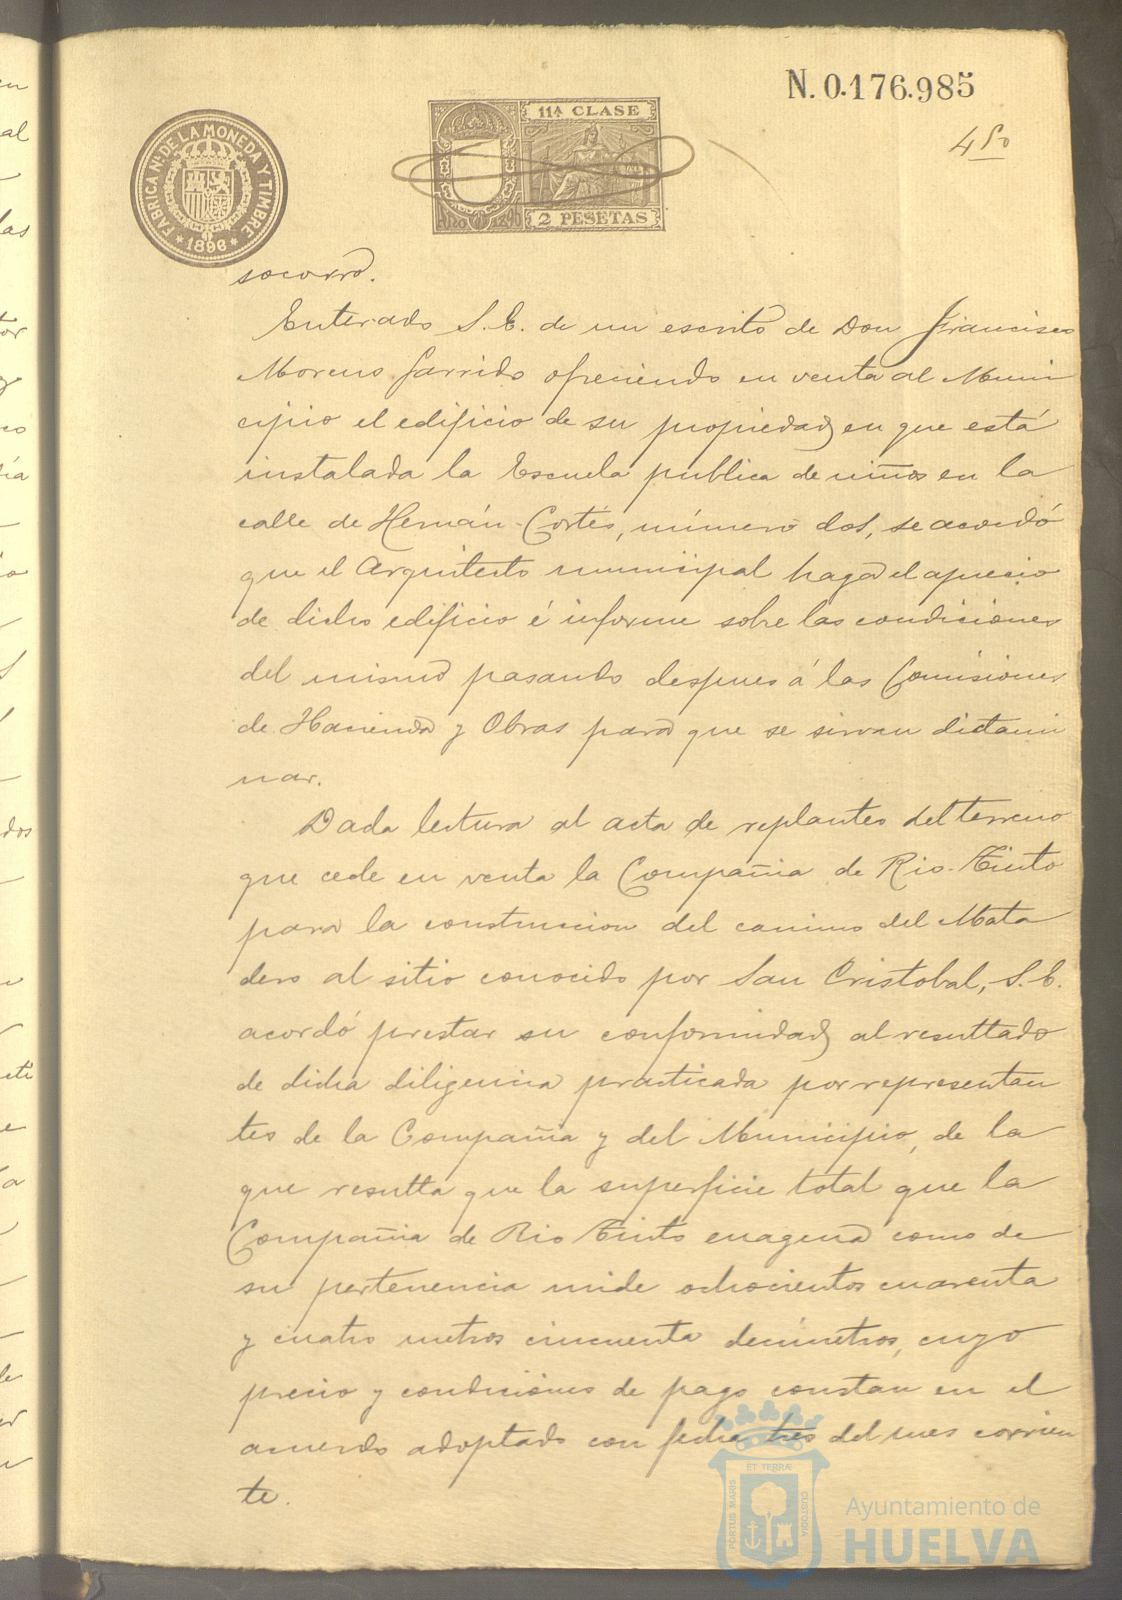 N. 0.176.985
FABRICA NL. DE LA MONEDA Y TIMBRE
* 1896 *
11ª CLASE
2 PESETAS
socorro.
Enterado S.E. de un escrito de Don Francisco
Moreno Garrido ofreciendo en venta al Muni
cipio el edificio de su propiedad en que está
instalada la Escuela publica de niños en la
calle de Hernán-Cortés, número dos, se acordó
que el Arquitecto municipal haga el aprecio
de dicho edificio é informe sobre las condiciones
del mismo pasando despues á las Comisiones
de Hacienda y Obras para que se sirvan dictami
nar.
Dada lectura al acta de replanteo del terreno
que cede en venta la Compañia de Rio-Tinto
para la construccion del camino del Mata
dero al sitio conocido por San Cristobal, S.E.
acordó prestar su conformidad al resultado
de dicha diligencia practicada por representan
tes de la Compañia y del Municipio, de la
que resulta que la superficie total que la
Compañia de Rio Tinto enagena como de
su pertenencia mide ochocientos cuarenta
y cuatro metros cincuenta decimetros, cuyo
precio y condiciones de pago constan en el
acuerdo adoptado con fecha tres del mes corrien
te.
PORTUS MARIS ET TERRÆ CUSTODIA
Ayuntamiento de
HUELVA